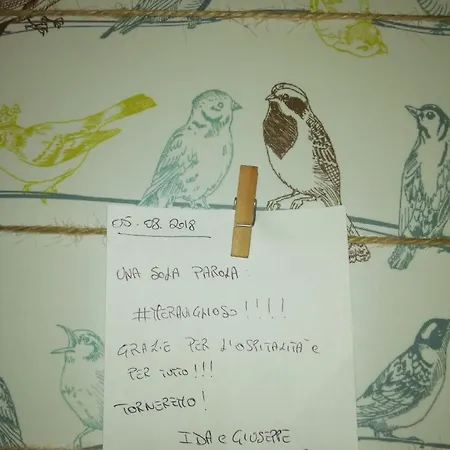 05.08.2018
UNA SOLA PAROLA:
#MERAVIGLIOSO!!!!
GRAZIE PER L'OSPITALITÀ e
PER TUTTO!!!
TORNEREMO!
IDA e GIUSEPPE